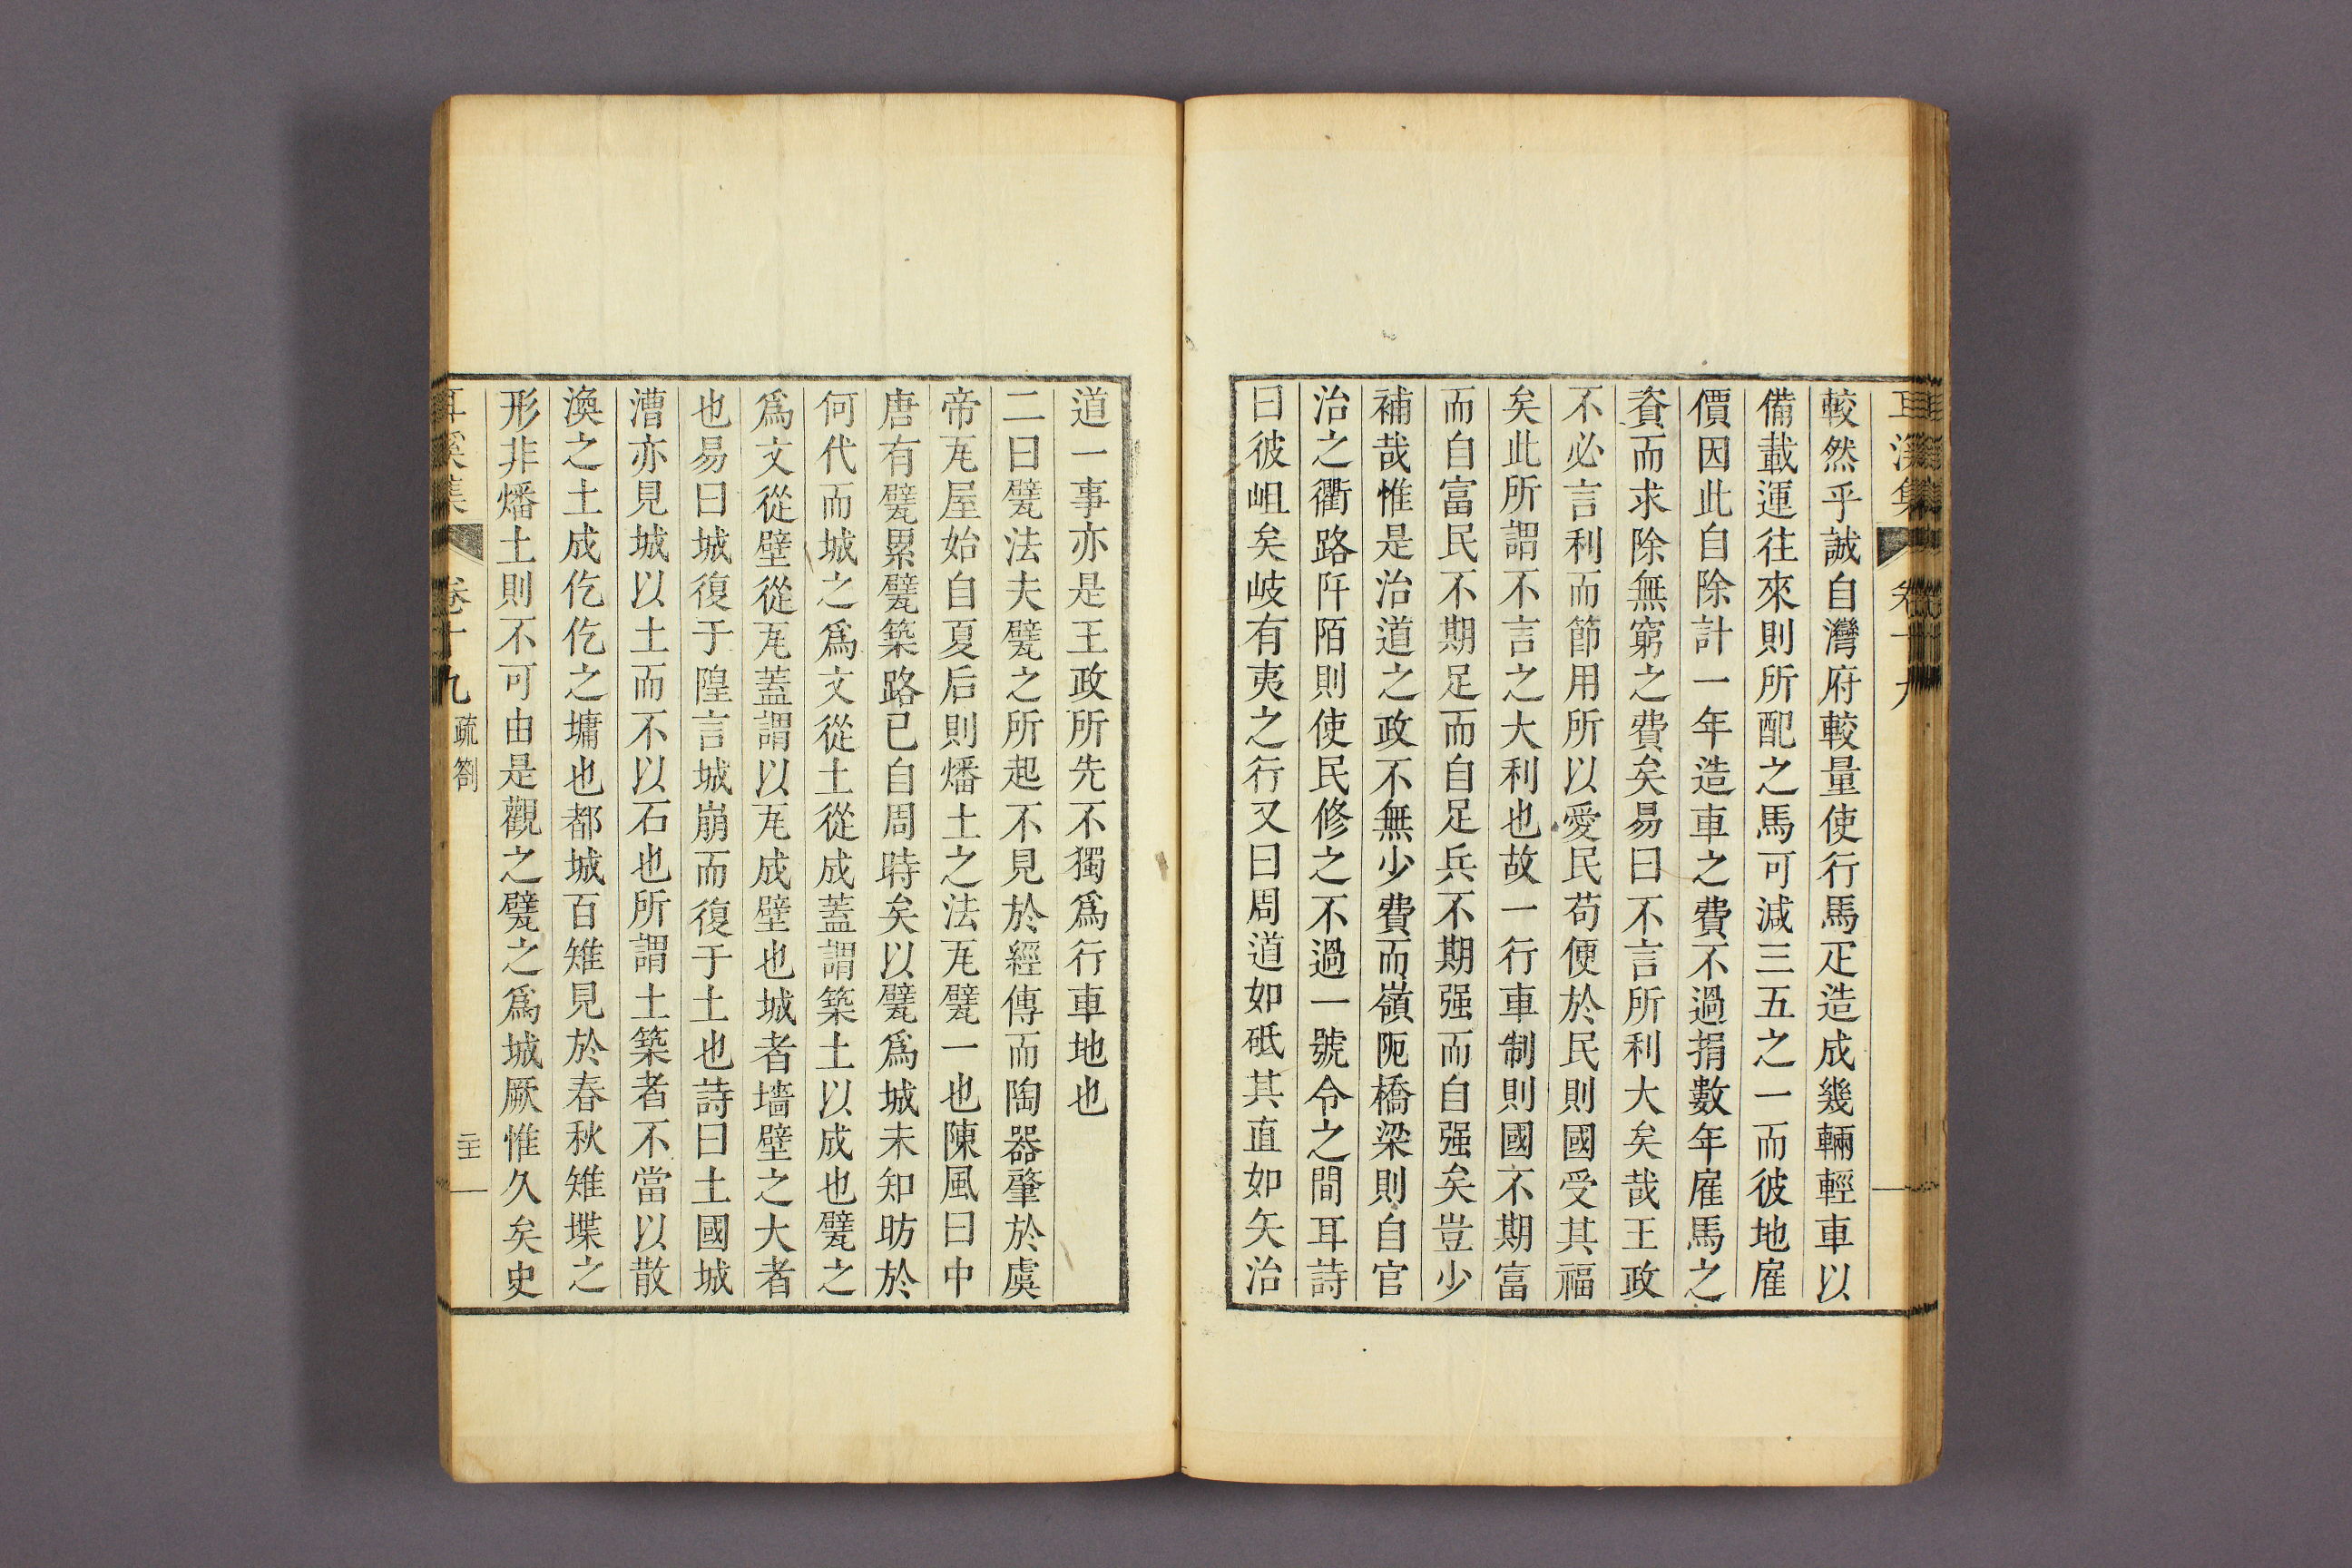 較然乎誠自灣府較量使行馬疋造成幾輛輕車以
備載運往來則所配之馬可減三五之一而彼地雇
價因此自除計一年造車之費不過捐數年雇馬之
資而求除無窮之費矣易曰不言所利大矣哉王政
不必言利而節用所以愛民苟便於民則國受其福
矣此所謂不言之大利也故一行車制則國不期富
而自富民不期足而自足兵不期强而自强矣豈少
補哉惟是治道之政不無少費而嶺阨橋梁則自官
治之衢路阡陌則使民修之不過一號令之間耳詩
曰彼岨矣岐有夷之行又曰周道如砥其直如矢治
道一事亦是王政所先不獨爲行車地也
二曰甓法夫甓之所起不見於經傳而陶器肇於虞
帝瓦屋始自夏后則燔土之法瓦甓一也陳風曰中
唐有甓累甓築路已自周時矣以甓爲城未知昉於
何代而城之爲文從土從成蓋謂築土以成也甓之
爲文從壁從瓦蓋謂以瓦成壁也城者墻壁之大者
也易曰城復于隍言城崩而復于土也詩曰土國城
漕亦見城以土而不以石也所謂土築者不當以散
渙之土成仡仡之墉也都城百雉見於春秋雉堞之
形非燔土則不可由是觀之甓之爲城厥惟久矣史
耳溪集 卷十九 疏箚 二十